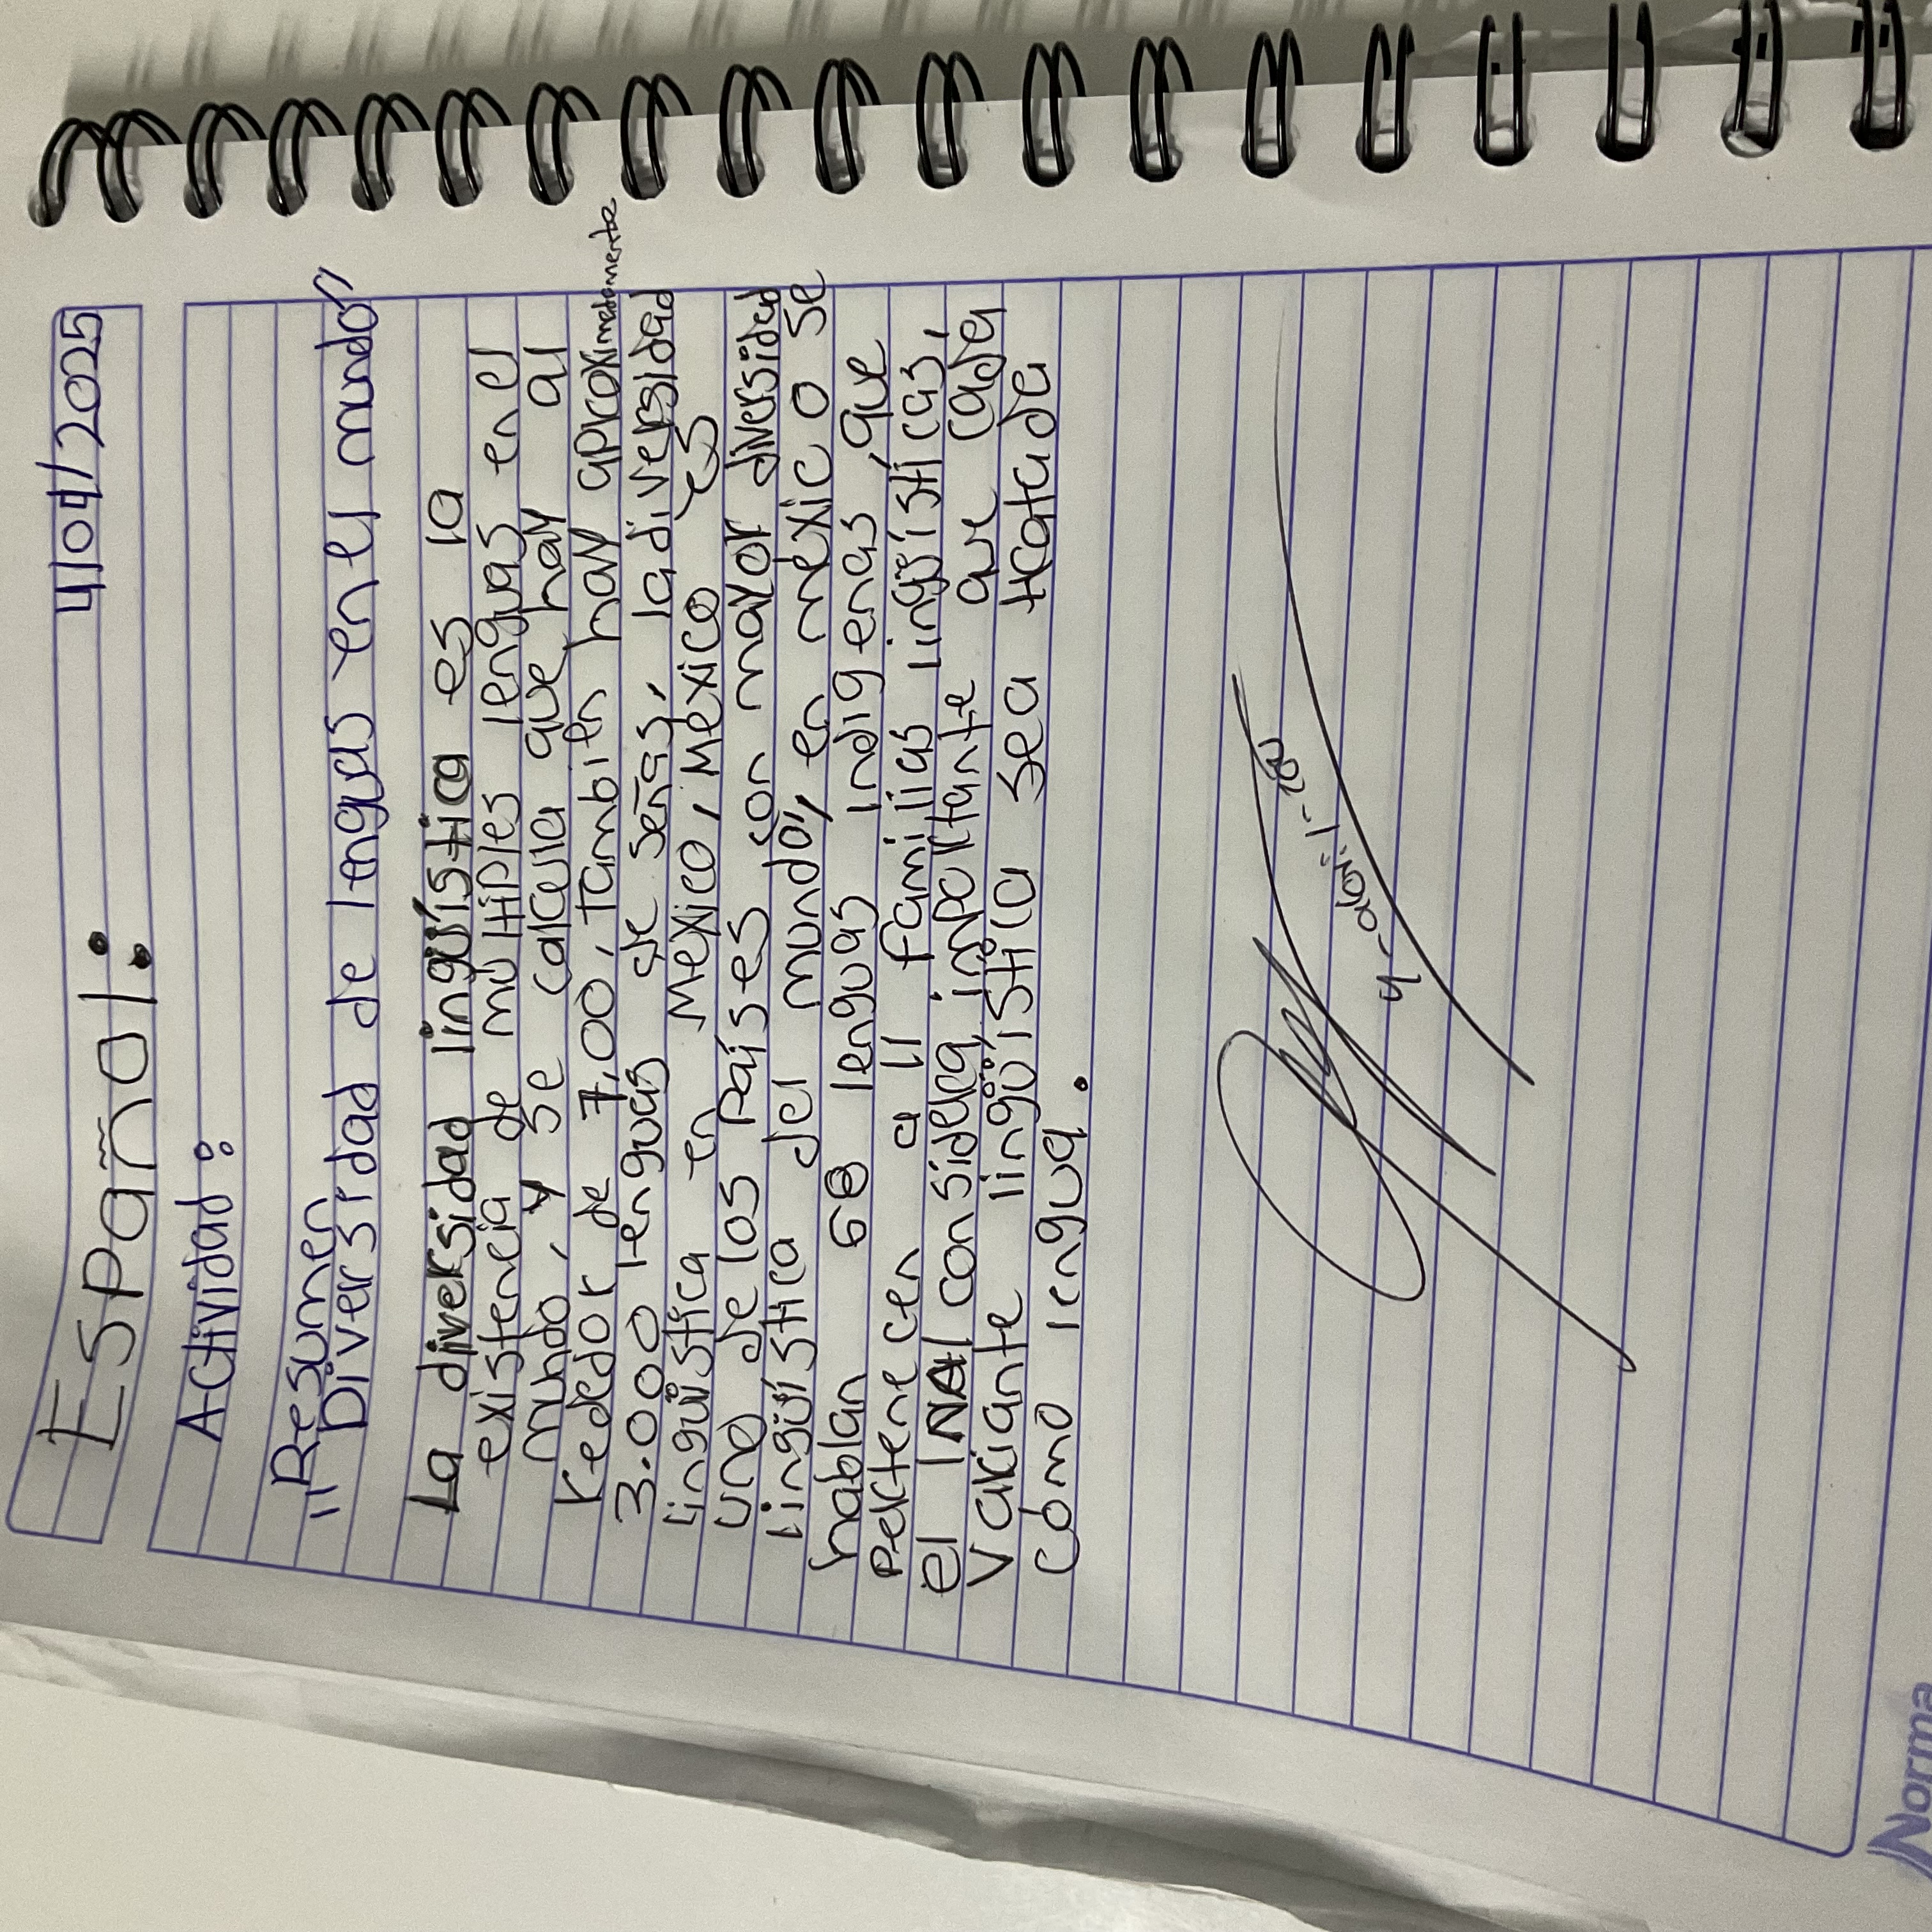 Español:
4/04/2025
Actividad:
Resumen
"Diversidad de lenguas en el mundo"
La diversidad lingüística es la
existencia de múltiples lenguas en el
mundo, y se calcula que hay al
rededor de 7,00, También hay aproximadamente
3.000 lenguas de señas, la diversidad
lingüística en Mexico, Mexico es
uno de los Países con mayor diversidad
lingüística del mundo, en mexico se
hablan 68 lenguas indigenas, que
pertenecen a 11 familias lingüísticas,
el INALI considera importante que cada
variante lingüística sea tratada
cómo lengua.
4-abril-25
Norma